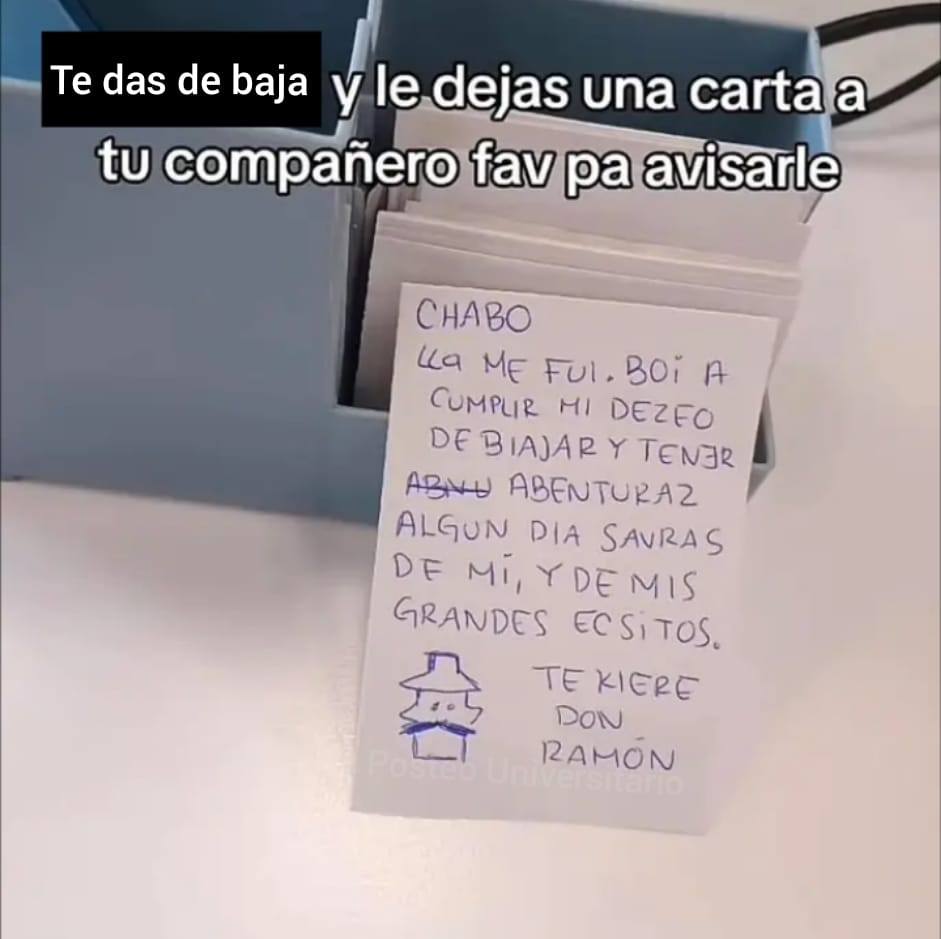 Te das de baja y le dejas una carta a
tu compañero fav pa avisarle
CHABO
LLa ME FUI. BOi A
CUMPLIR MI DEZEO
DE BIAJAR Y TENER
ABNU ABENTURAZ
ALGUN DIA SAVRAS
DE Mí, Y DE MIS
GRANDES ECSiTOS.
TE KIERE
DON
RAMÓN
Posteo Universitario